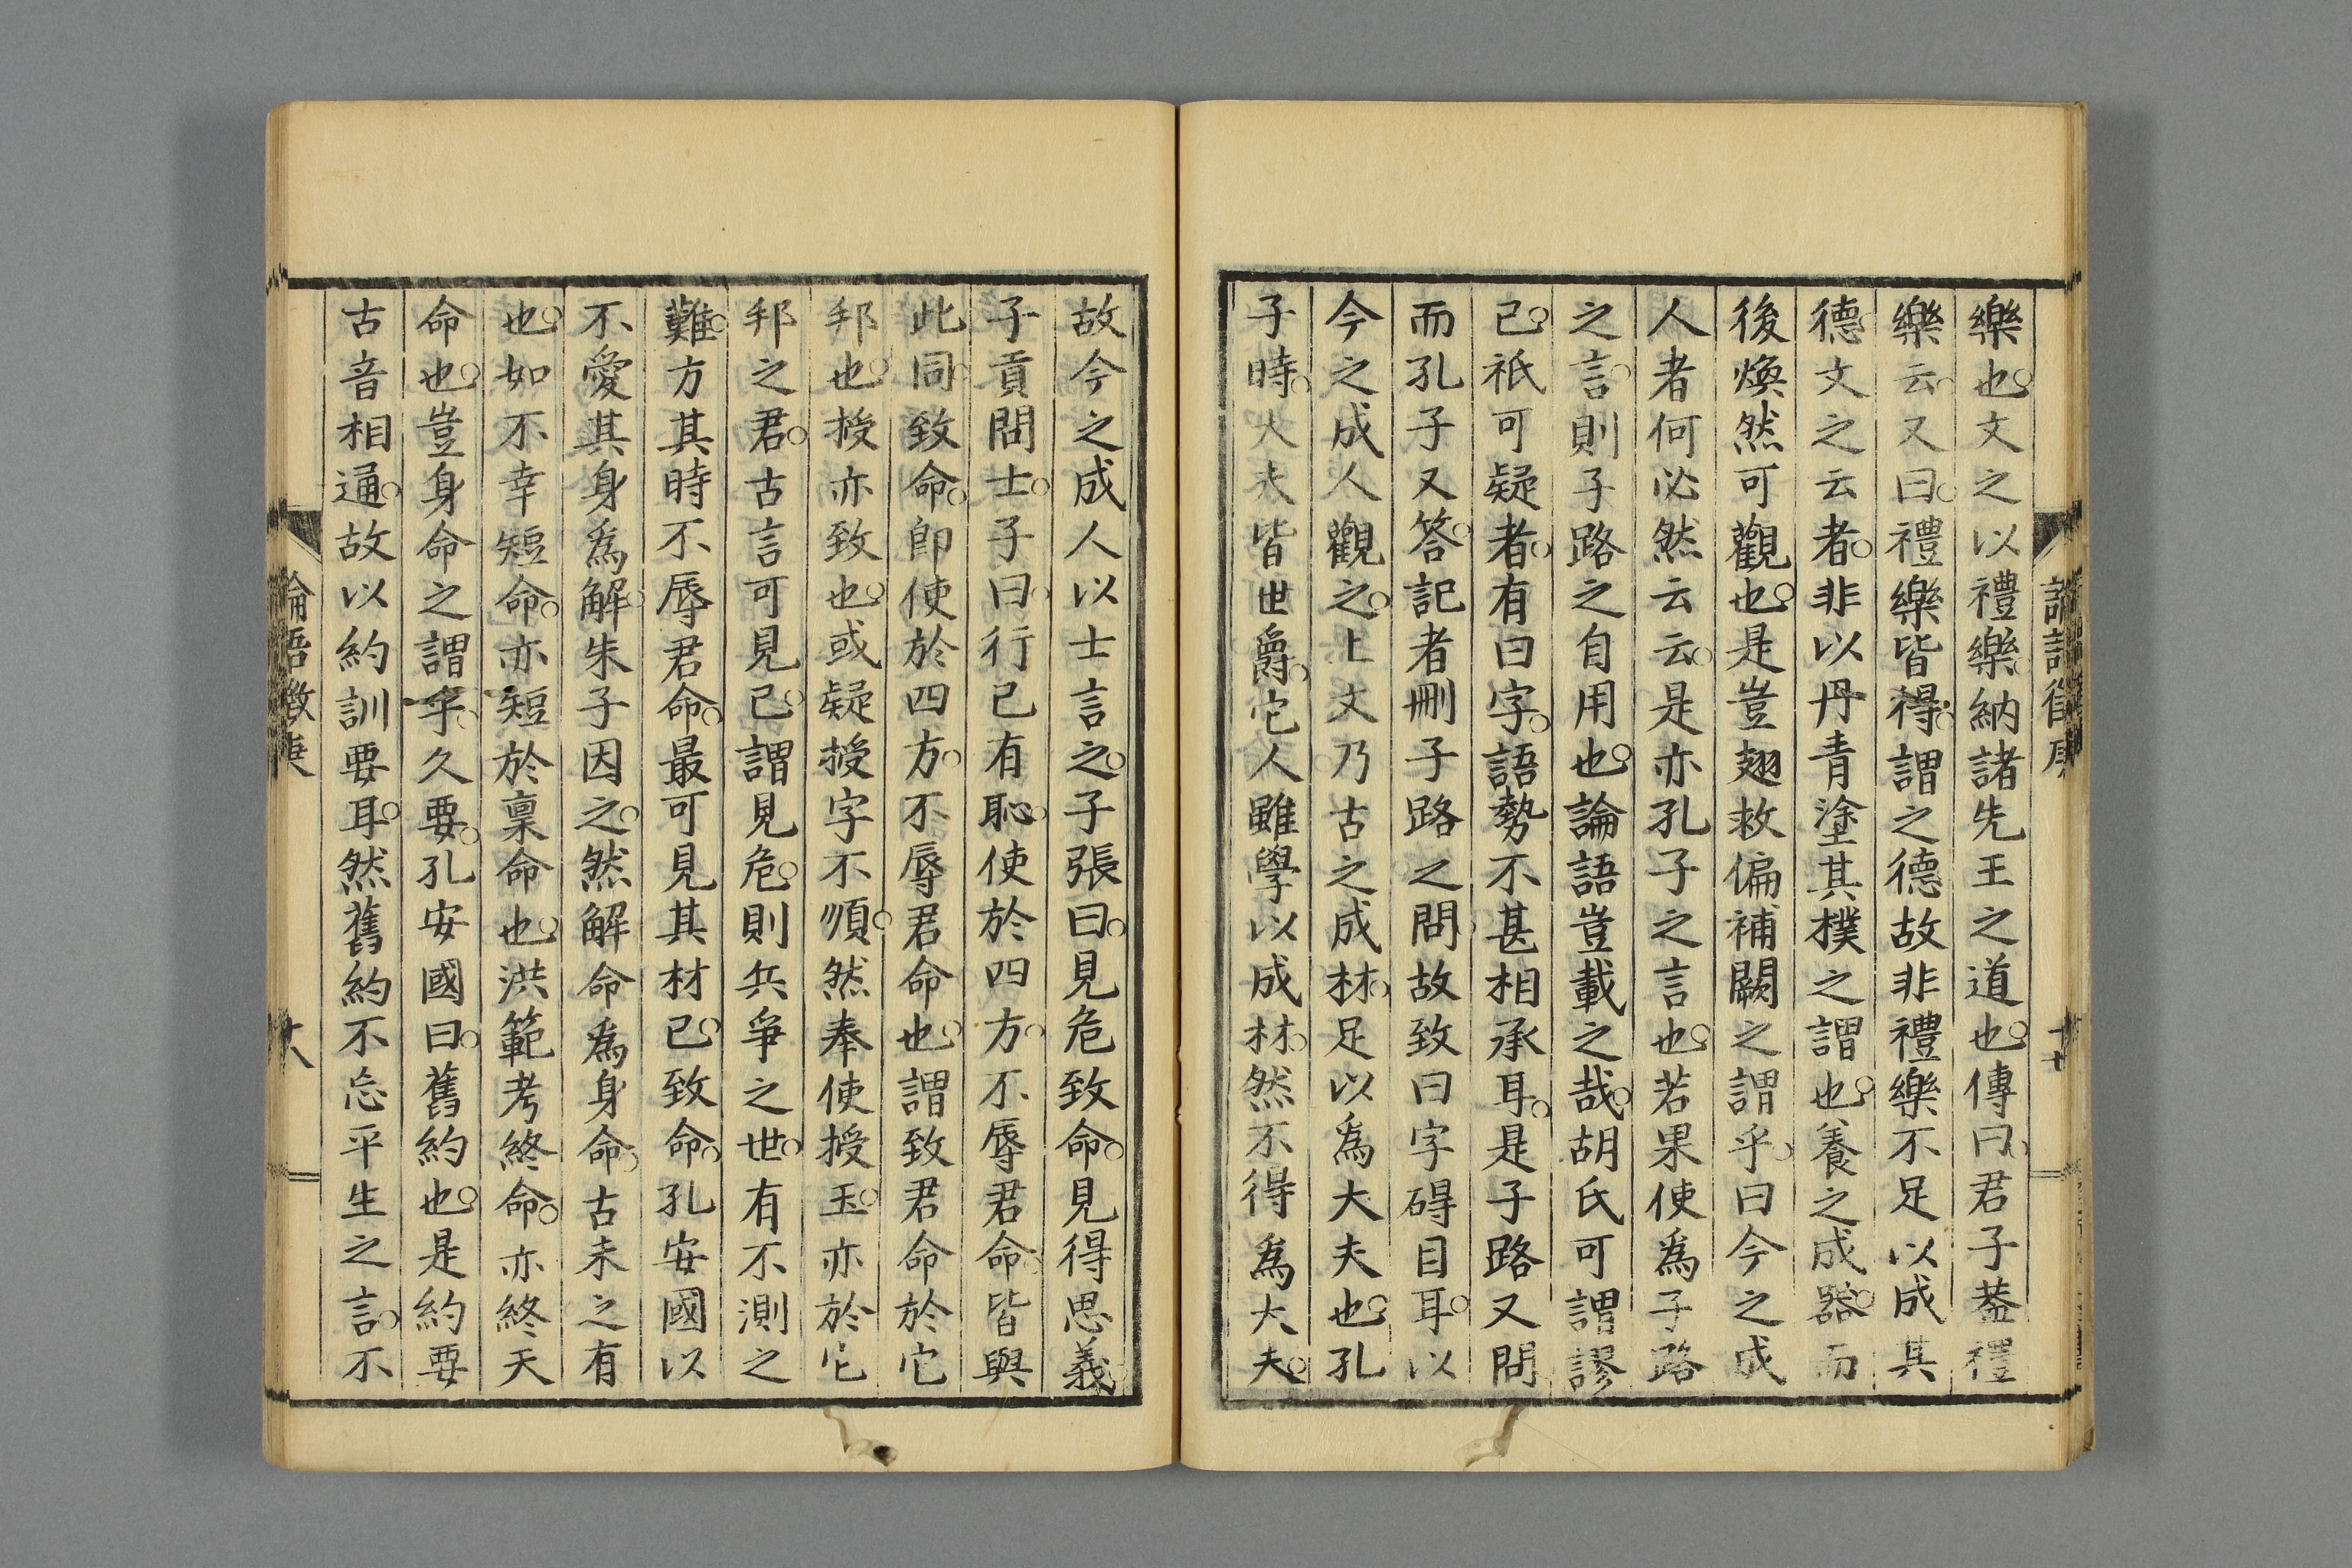 樂也文之以禮樂納諸先王之道也傳曰君子蓋禮
樂云又曰禮樂皆得謂之德故非禮樂不足以成其
德文之云者非以丹青塗其樸之謂也養之成器而
後煥然可觀也是豈翅救偏補闕之謂乎曰今之成
人者何必然云云是亦孔子之言也若果使爲子路
之言則子路之自用也論語豈載之哉胡氏可謂謬
已祇可疑者有曰字語勢不甚相承耳是子路又問
而孔子又答記者刪子路之問故致曰字碍目耳以
今之成人觀之上文乃古之成材足以爲大夫也孔
子時大夫皆世爵它人雖學以成材然不得爲大夫
故今之成人以士言之子張曰見危致命見得思義
子貢問士子曰行己有恥使於四方不辱君命皆與
此同致命卽使於四方不辱君命也謂致君命於它
邦也授亦致也或疑授字不順然奉使授玉亦於它
邦之君古言可見已謂見危則兵爭之世有不測之
難方其時不辱君命最可見其材已致命孔安國以
不愛其身爲解朱子因之然解命爲身命古未之有
也如不幸短命亦短於稟命也洪範考終命亦終天
命也豈身命之謂乎久要孔安國曰舊約也是約要
古音相通故以約訓要耳然舊約不忘平生之言不
論語徵庚